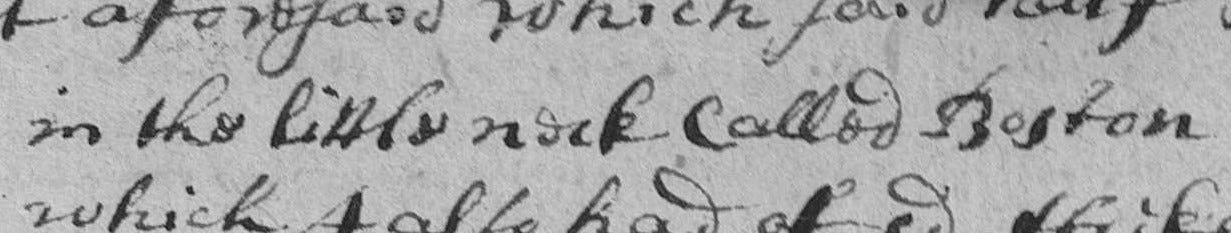 aforesaid which said half
in the little neck Called Boston
which I also had of